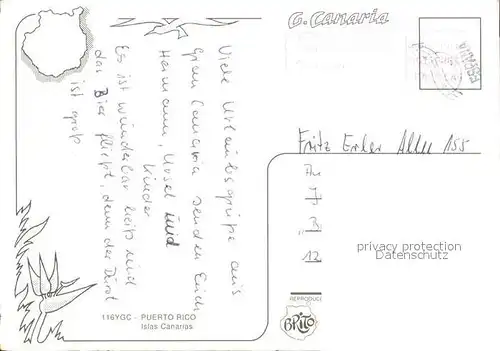 G. Canaria
ESPAÑA
Viele Urlaubsgrüße aus
Gran Canaria senden Euch
Hermann, Ursel und
Kinder
Es ist wunderbar heiß und
das Bier fließt, denn der Durst
ist groß.
Fritz Erler Allee 155
12
privacy protection
Datenschutz
116YGC - PUERTO RICO
Islas Canarias
REPRODUCI
BRITO